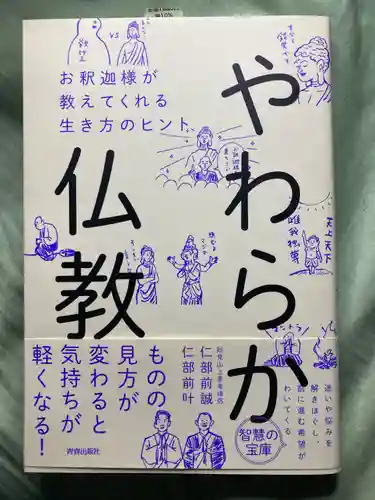 やわらか
仏教
お釈迦様が
教えてくれる
生き方のヒント
VS
天上天下
唯我独尊
ものの
見方が
変わると
気持ちが
軽くなる!
仁部前誠
仁部前叶
智慧の
宝庫
迷いや悩みを
解きほぐし、
前に進む希望が
わいてくる
青春出版社